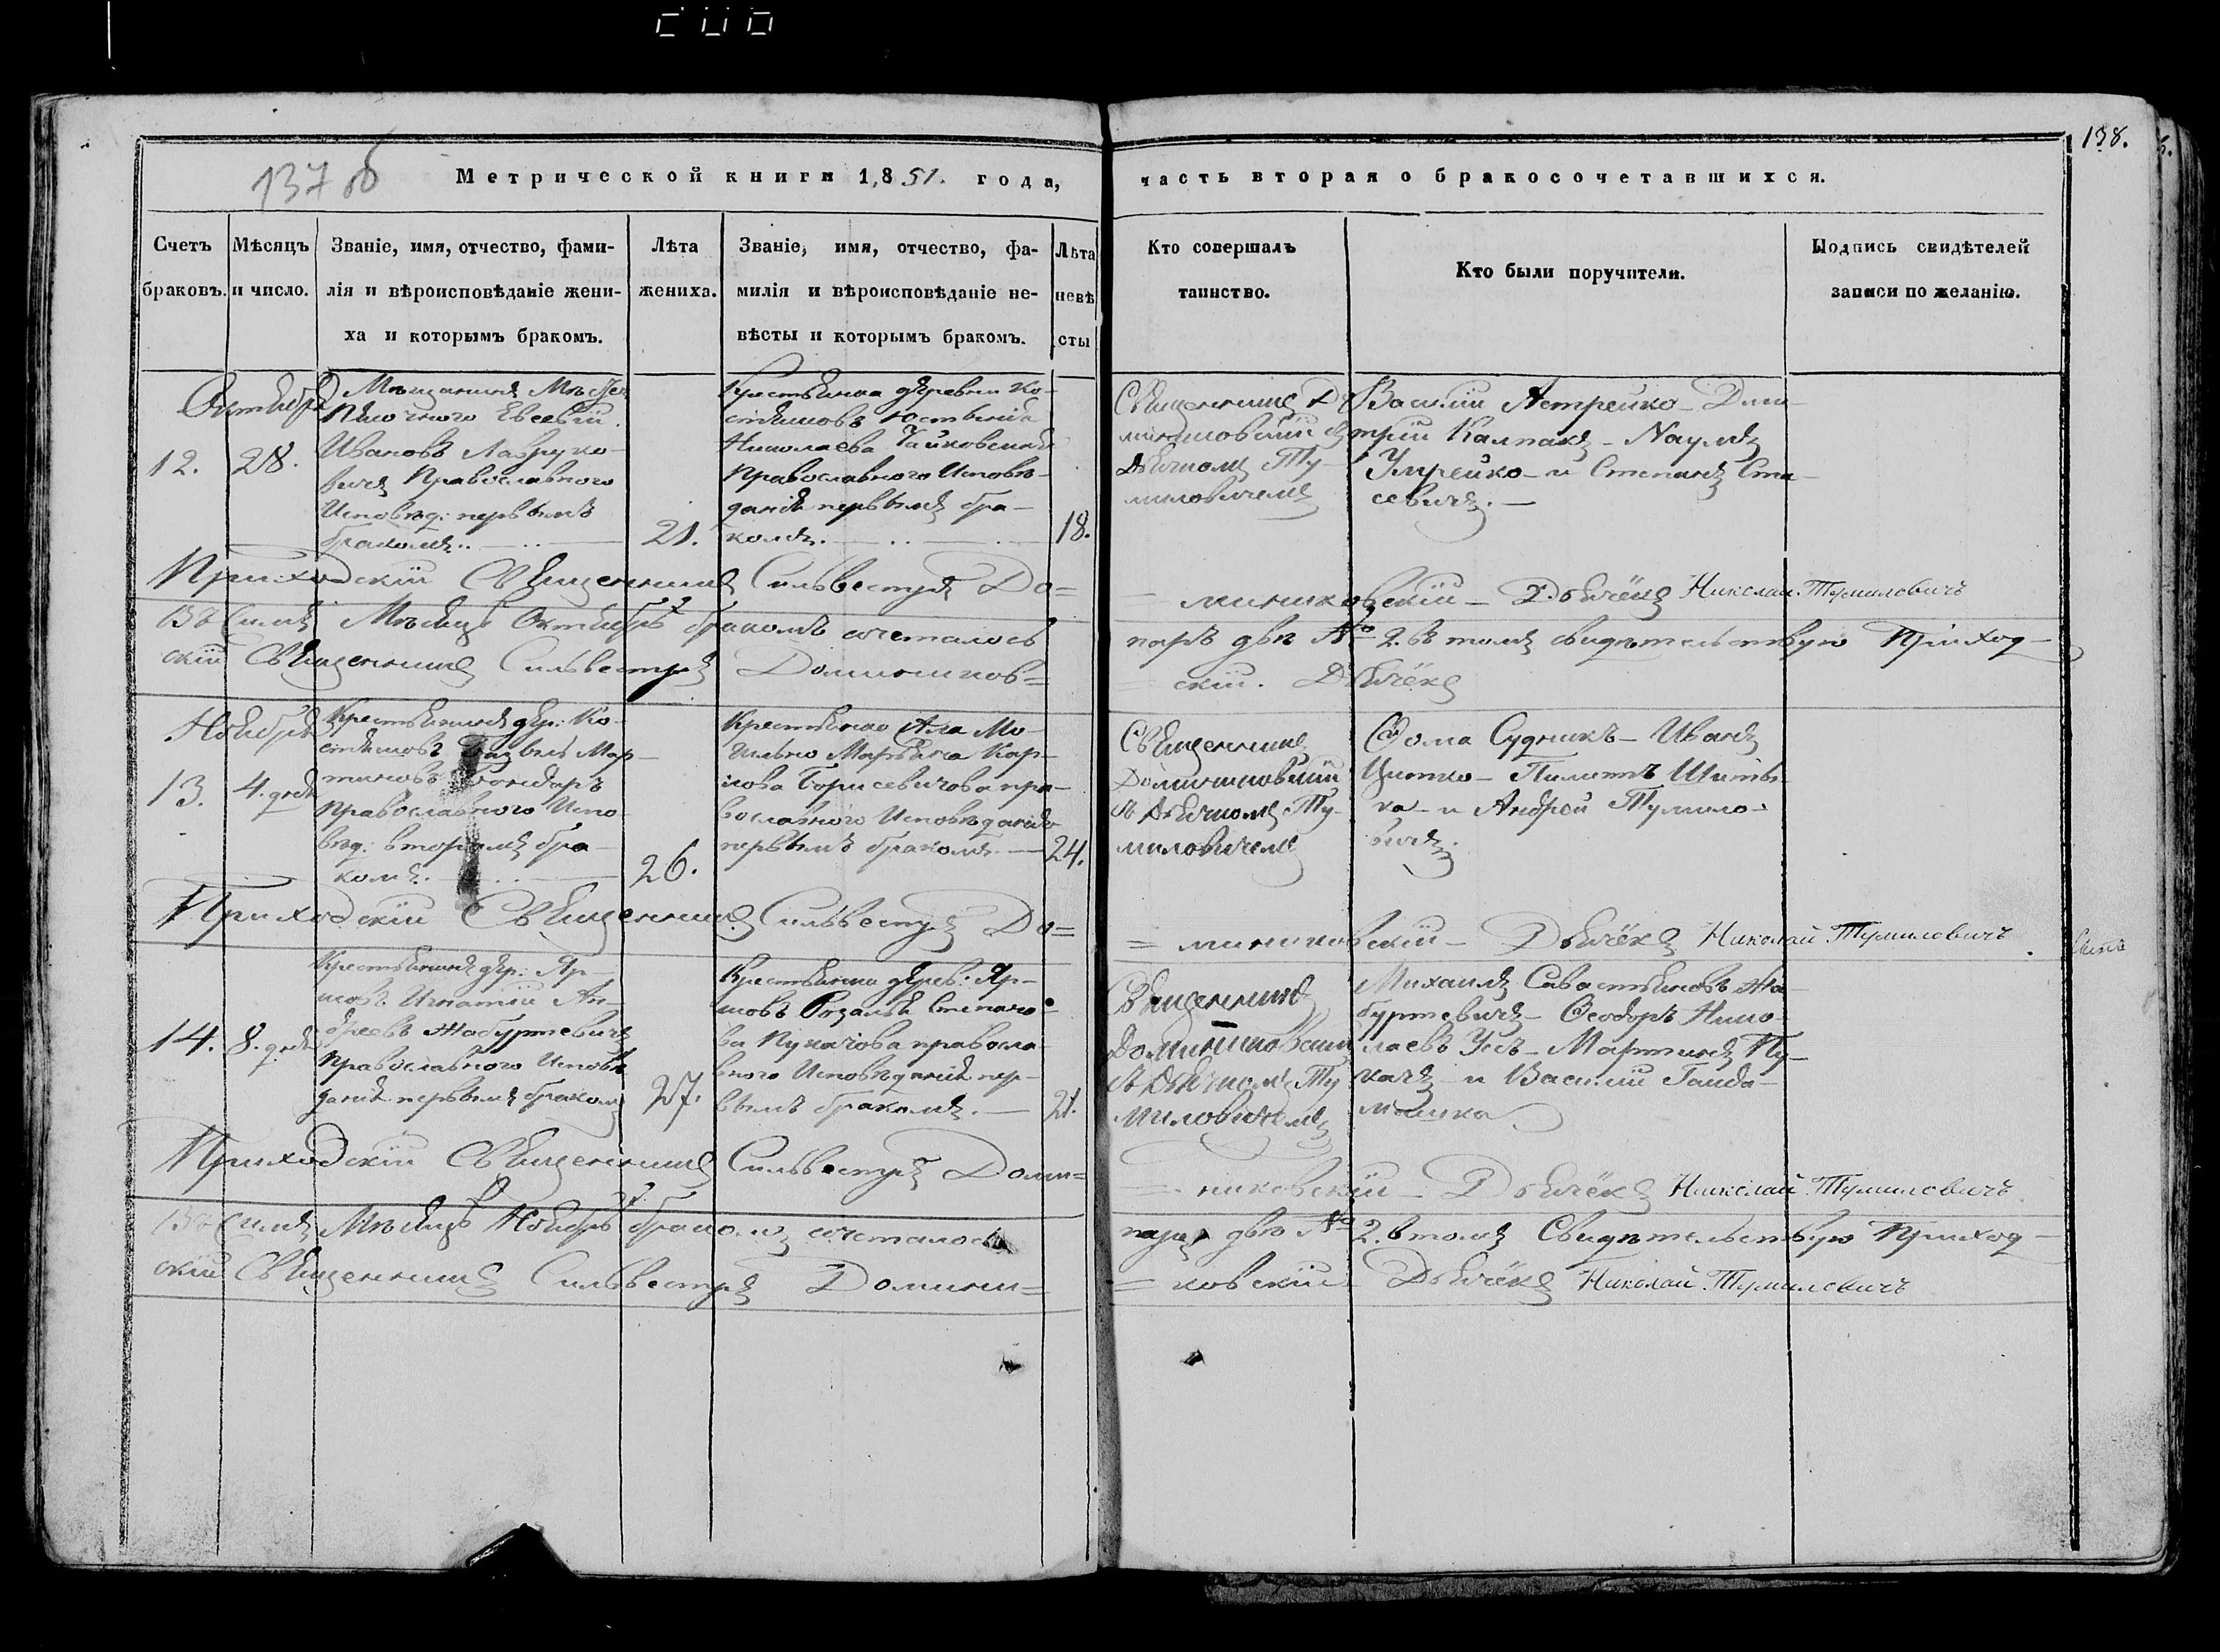 137 об
138.
Метрической книги 1,851. года,
часть вторая о бракосочетавшихся.
Счетъ браковъ.
Мѣсяцъ и число.
Званіе, имя, отчество, фами-
лія и вѣроисповѣданіе жени-
ха и которымъ бракомъ.
Лѣта жениха.
Званіе, имя, отчество, фа-
милія и вѣроисповѣданіе не-
вѣсты и которымъ бракомъ.
Лѣта
невѣ
сты
Кто совершалъ
таинство.
Кто были поручители.
Подпись свидѣтелей
записи по желанію.
Октября
12.
28.
Мѣщанинъ
Евсевій
Ивановъ Лавруко-
вичъ Православного
Исповѣд: первымъ
бракомъ.
21.
Крестьянка деревни Ко-
Николаева Чайковская
Православного Исповѣ-
данія первымъ бра-
комъ.
18.
Священникъ До-
миниковскій съ
Дьячкомъ Ту-
миловичемъ
Василій Астрейко - Дми-
трій Калпакъ - Наумъ
и Степанъ Ста-
севичъ.
Приходскій Священникъ Сильвестръ До=
= миниковскій - Дьячёкъ Николай Тумиловичъ
Въ семъ Мѣсяцѣ Октябрѣ бракомъ сочеталось
паръ двѣ № 2. въ томъ свидѣтельствую Приход-
скій Священникъ Сильвестръ Домиников=
= скій. Дьячёкъ
Ноября
13.
4. дня
Крестьянинъ дер: Ко-
Мар-
тиновъ Бондаръ
Православного Испо-
вѣд: вторымъ бра-
комъ.
26.
Крестьянка
Марьяна Кар-
пова Борисевичова пра-
вославного Исповѣданія
первымъ бракомъ.
24.
Священникъ
Доминиковскій
съ Дьячкомъ Ту-
миловичемъ
Ѳома Судникъ - Иванъ
Цитко - Пилипъ
и Андрей Тумило-
вичъ.
Приходскій Священникъ Сильвестръ До=
= миниковскій - Дьячёкъ Николай Тумиловичъ
14.
8. дня
Крестьянинъ дер: Яр-
Игнатій Ан-
дреевъ Жабуртевичъ
Православного Исповѣ
данія первымъ бракомъ
27.
Крестьянка дерев: Яр-
Розалія Степано-
ва Пукачова правосла-
вного Исповѣданія пер-
вымъ бракомъ.
21.
Священникъ
Доминиковскій
съ Дьячкомъ Ту
миловичемъ
Михаилъ Савастьяновъ Жа-
буртевичъ - Ѳеодоръ Нико-
лаевъ Усъ - Мартинъ Пу-
качъ - и Василій Гайда-
Приходскій Священникъ Сильвестръ Доми=
= никовскій - Дьячёкъ Николай Тумиловичъ
Въ семъ Мѣсяцѣ Ноябрѣ бракомъ сочеталось
паръ двѣ № 2. въ томъ Свидѣтельствую Приход-
скій Священникъ Сильвестръ Домини=
= ковскій Дьячёкъ Николай Тумиловичъ